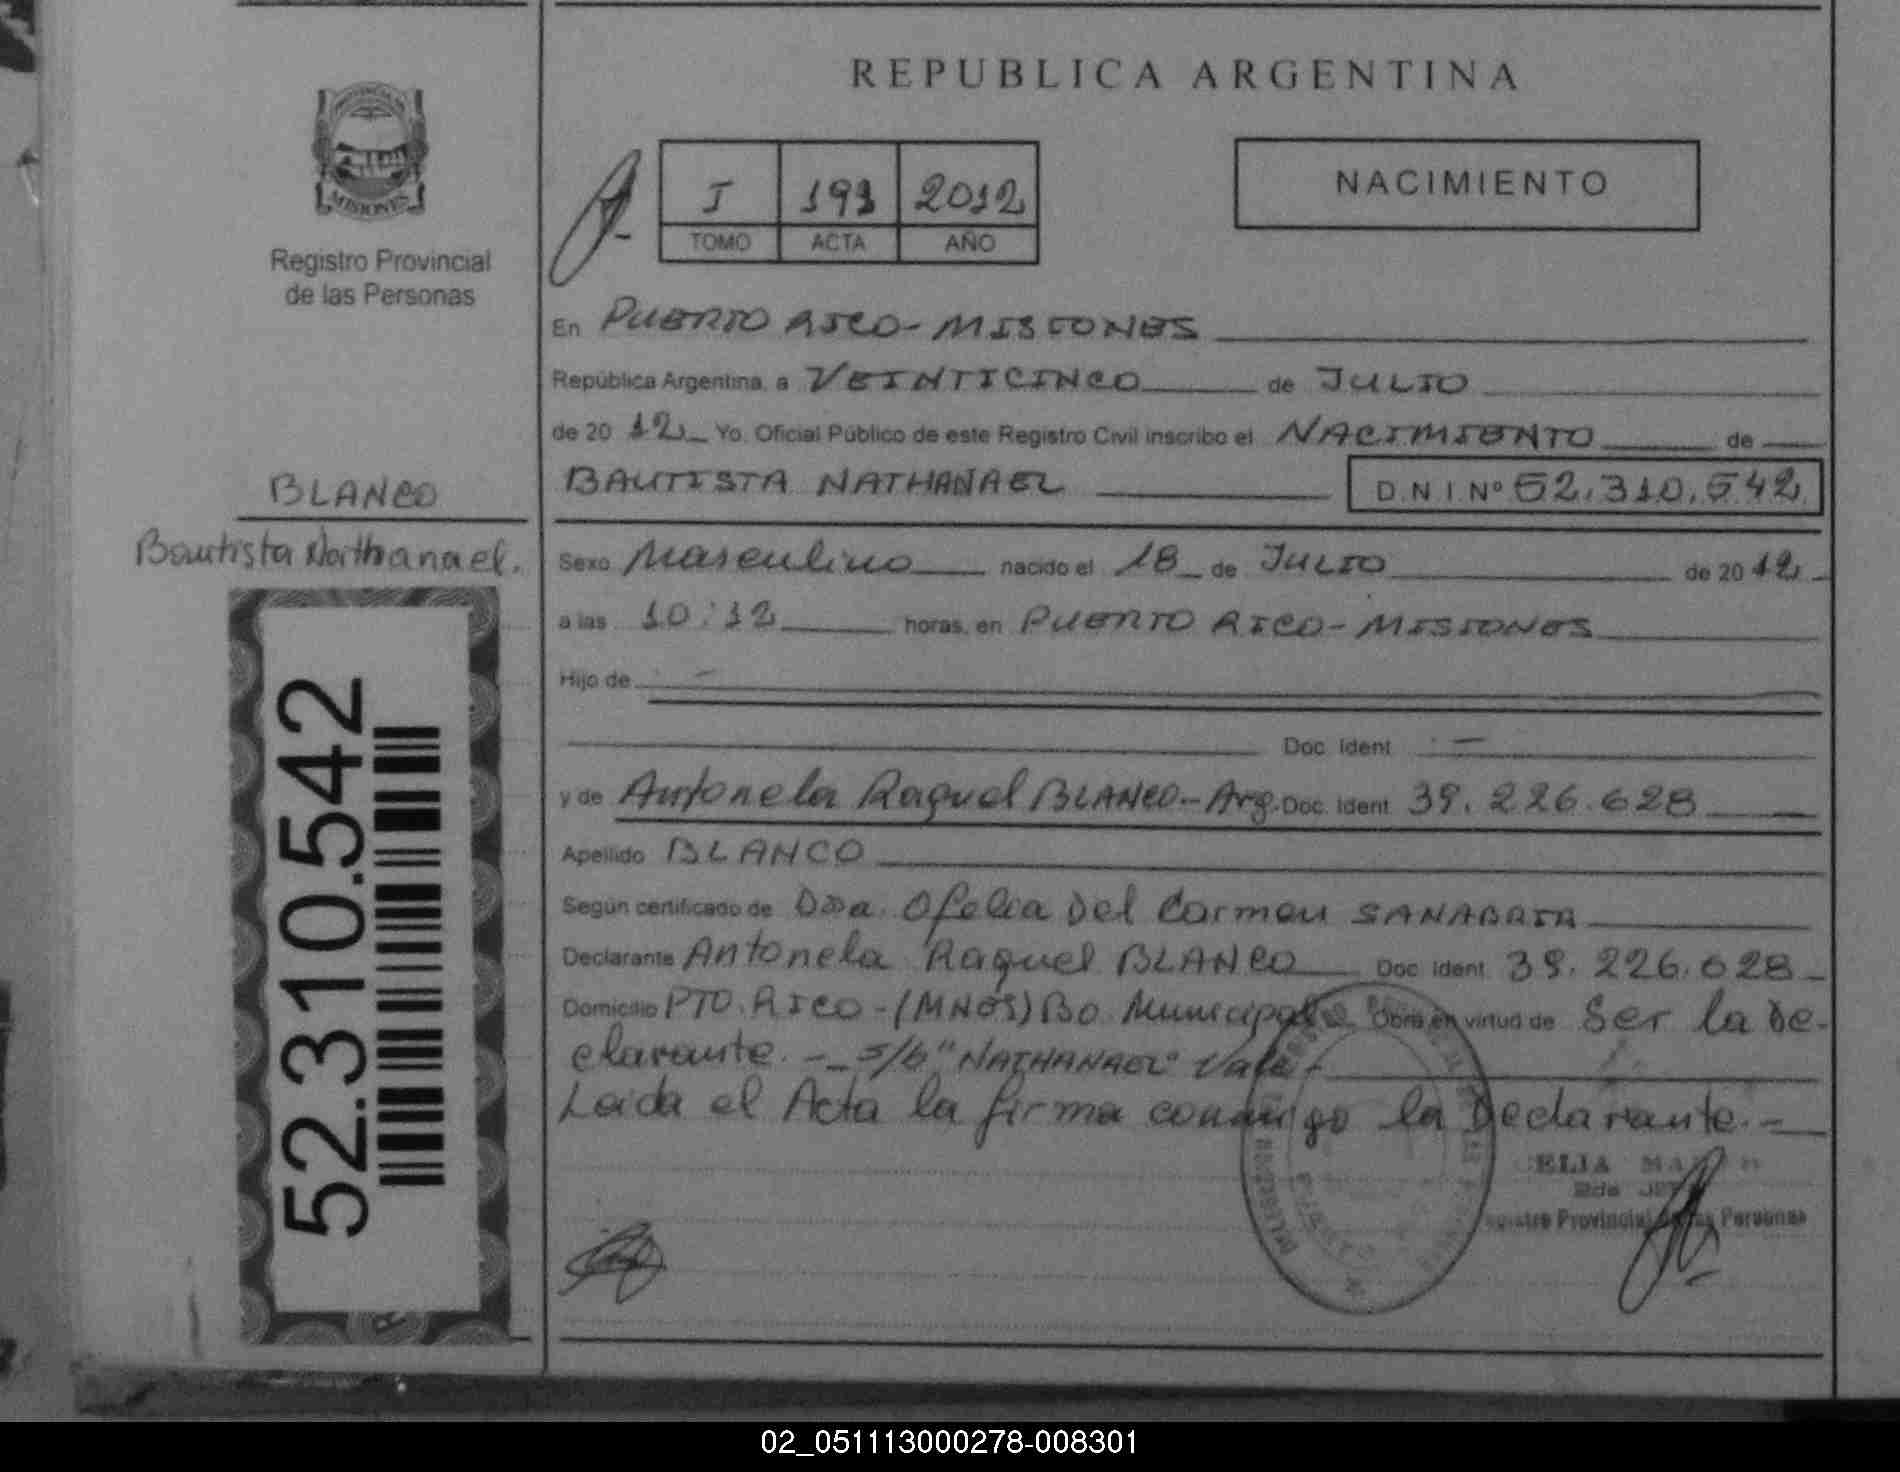 REPUBLICA ARGENTINA
MISIONES
Registro Provincial
de las Personas
I 193 2012
TOMO ACTA AÑO
NACIMIENTO
En PUERTO RICO - MISIONES
República Argentina, a VEINTICINCO de JULIO
de 2012 Yo, Oficial Público de este Registro Civil inscribo el NACIMIENTO de
BAUTISTA NATHANAEL D.N.I Nº 52.310.542
BLANCO
Bautista Nathanael.
Sexo Masculino nacido el 18 de JULIO de 2012
a las 10:12 horas, en PUERTO RICO - MISIONES
Hijo de -
Doc. Ident. -
y de Antonela Raquel BLANCO - Arg. Doc. Ident. 39.226.628
Apellido BLANCO
Según certificado de Dra. Ofelia Del Carmen SANABRIA
Declarante Antonela Raquel BLANCO Doc. Ident. 39.226.628
Domicilio PTO. RICO - (MNES) Bo. Municipal Obra en virtud de Ser la De-
clarante. - S/b "NATHANAEL" Vale -
Leida el Acta la firma conmigo la Declarante. -
52.310.542
ELIA
2da
Registro Provincial de las Personas
02_051113000278-008301